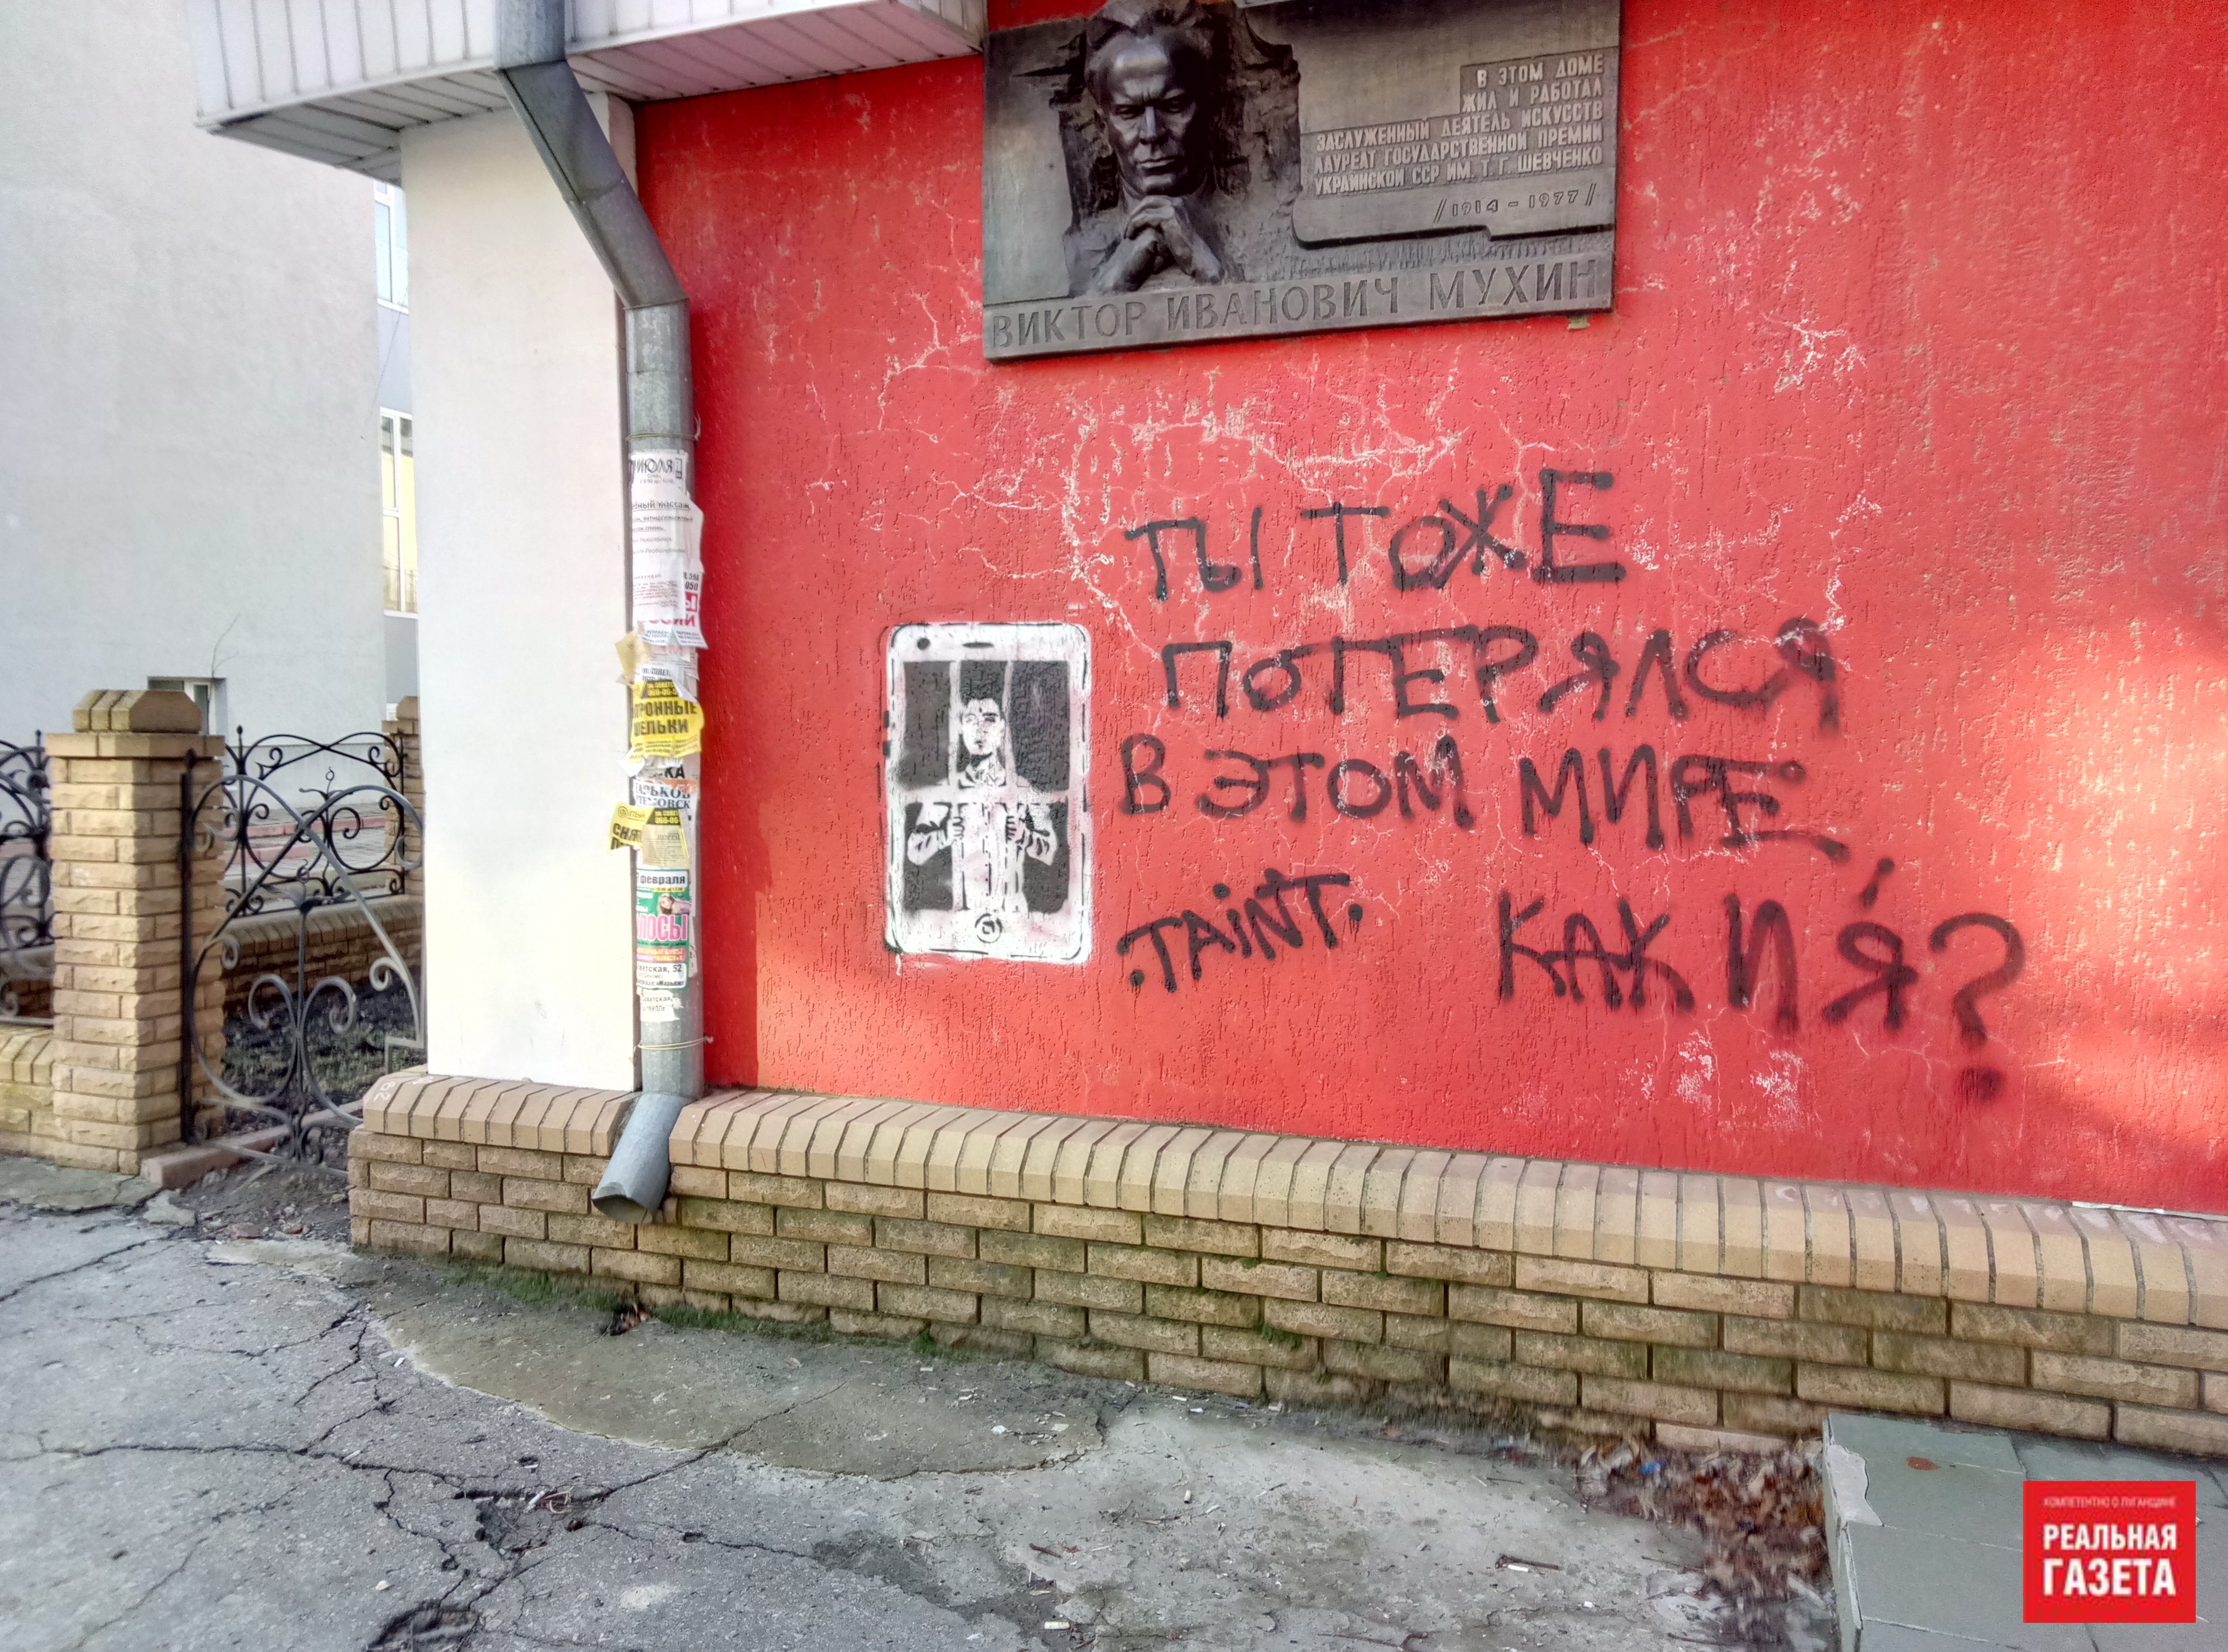 В ЭТОМ ДОМЕ
ЖИЛ И РАБОТАЛ
ЗАСЛУЖЕННЫЙ ДЕЯТЕЛЬ ИСКУССТВ
ЛАУРЕАТ ГОСУДАРСТВЕННОЙ ПРЕМИИ
УКРАИНСКОЙ ССР ИМ. Т. Г. ШЕВЧЕНКО
/1914 - 1977/
ВИКТОР ИВАНОВИЧ МУХИН
ТЫ ТОЖЕ
ПОТЕРЯЛСЯ
В ЭТОМ МИРЕ,
КАК И Я?
.TAiNT.
февраля
КОМПЕТЕНТНО О ЛУГАНЩИНЕ
РЕАЛЬНАЯ
ГАЗЕТА